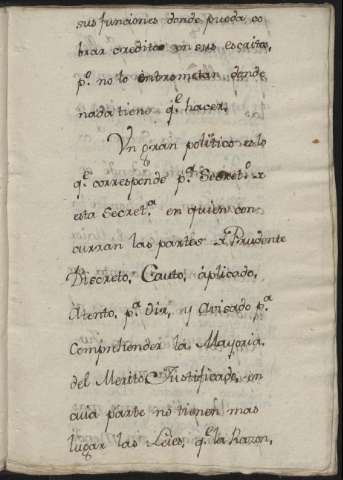 sus funciones donde pueda co
brar credito en sus escritos,
p.º no lo entrometan donde
nada tiene q.e hacer.
Vn gran politico es lo
q.e corresponde p.a Secret.º
esta Secret.a en quien con
curran las partes Prudente
Discreto, Cauto, aplicado,
Atento, p.a Oir, y Avisado p.a
Comprehender la Mayoria
del Merito Justificado, en
cuia parte no tienen mas
lugar las Leies, q.e la Razon,